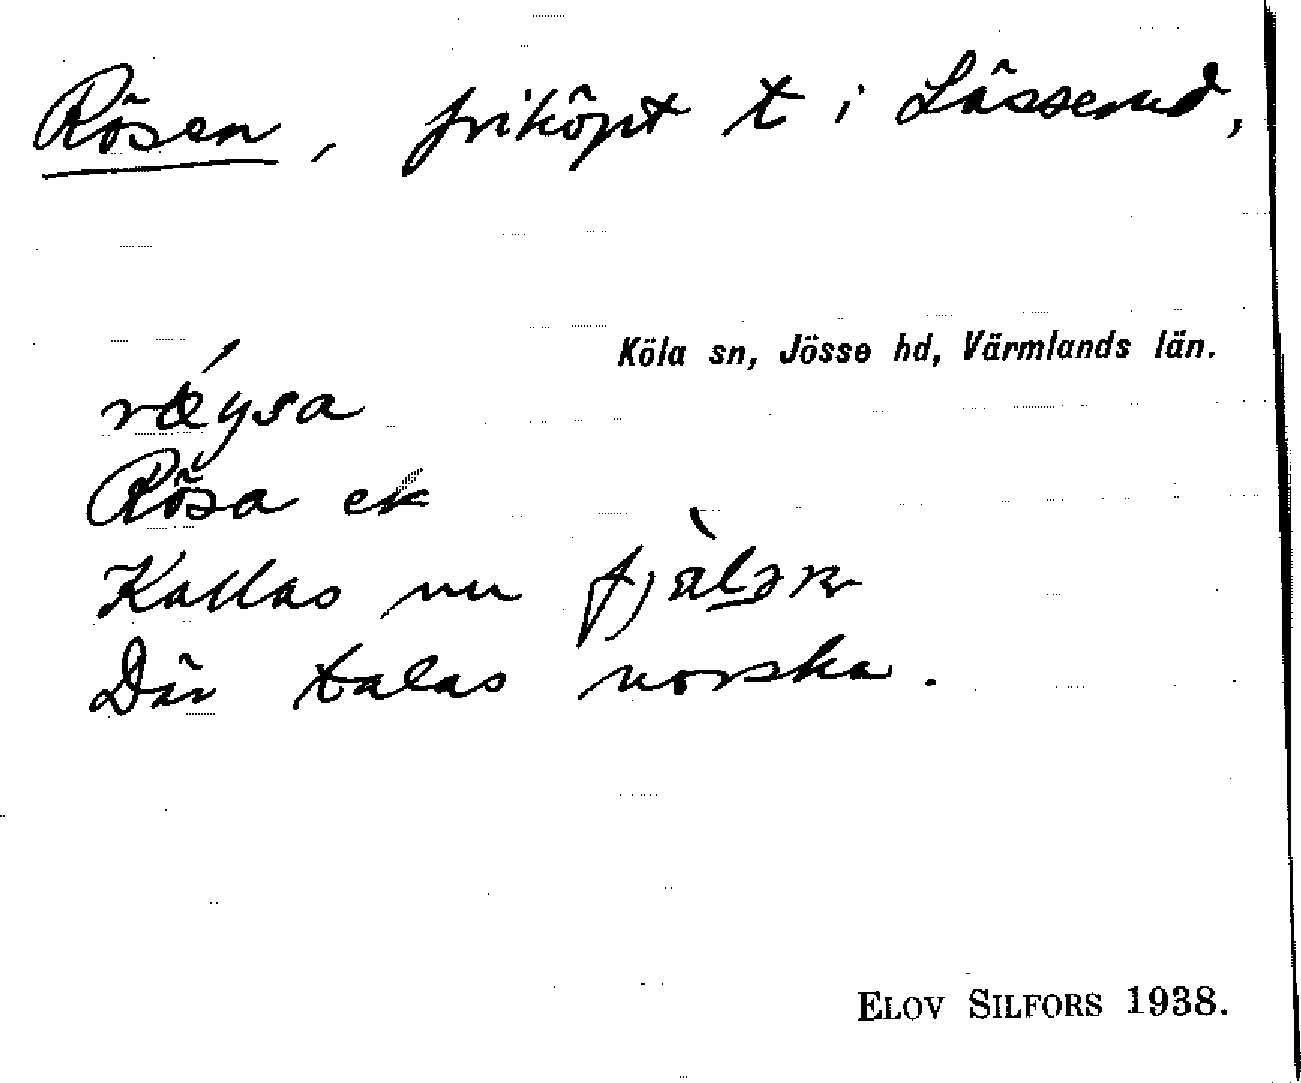 Rösen, friköpt t i Lässerud,
Köla sn, Jösse hd, Värmlands län.
rǽysa
Rösa ek
Kallas nu
Där talas norska.
ELOV SILFORS 1938.